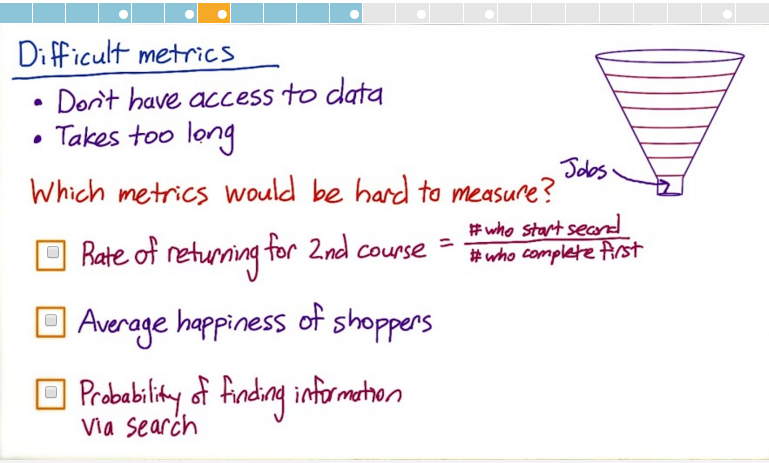 Difficult metrics
• Don't have access to data
• Takes too long
Jobs
Which metrics would be hard to measure?
Rate of returning for 2nd course = # who start second
# who complete first
Average happiness of shoppers
Probability of finding information
via search